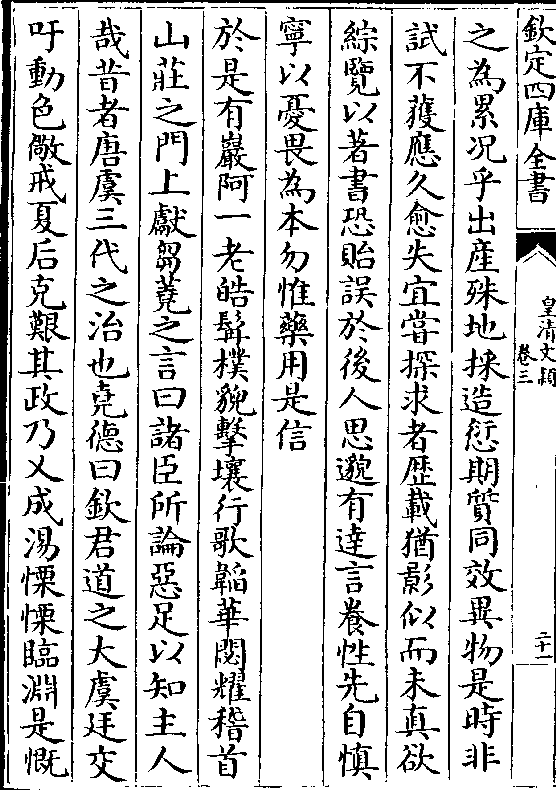 欽定四庫全書
皇清文穎
卷三
二十一
之為累况乎出產殊地採造愆期質同效異物是時非
試不獲應久愈失宜嘗探求者歴載猶影似而未真欲
綜覽以著書恐貽誤於後人思邈有達言養性先自慎
寧以憂畏為本勿惟藥用是信
於是有巖阿一老皓髯樸貌擊壤行歌韜華閟耀稽首
山莊之門上獻芻蕘之言曰諸臣所論惡足以知主人
哉昔者唐虞三代之治也堯德曰欽君道之大虞廷交
吁動色儆戒夏后克艱其政乃乂成湯慄慄臨淵是慨